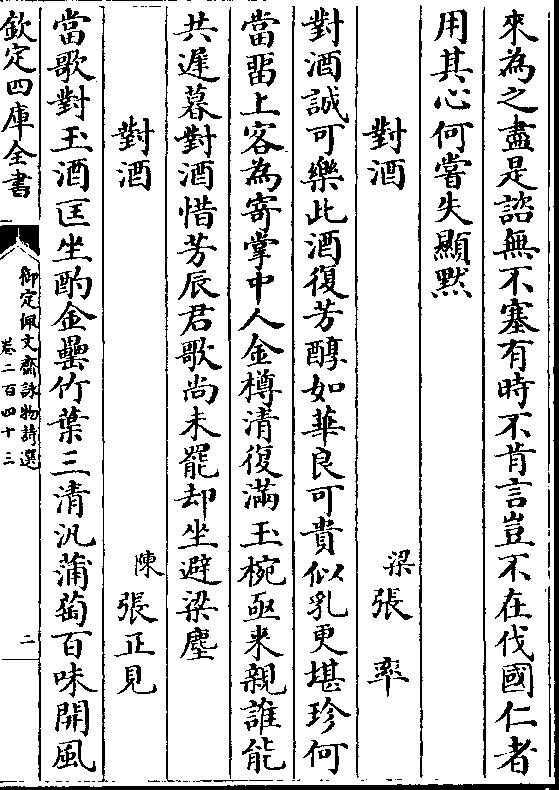 來為之盡是諮無不塞有時不肯言豈不在伐國仁者
用其心何嘗失顯黙
對酒　梁張　率
對酒誠可樂此酒復芳醇如華良可貴似乳更堪珍何
當留上客為寄掌中人金樽清復滿玉椀亟来親誰能
共遲暮對酒惜芳辰君歌尚未罷却坐避梁塵
對酒　陳張正見
當歌對玉酒匡坐酌金罍竹葉三清汎蒲萄百味開風
欽定四庫全書
御定佩文齋詠物詩選
卷二百四十三
二